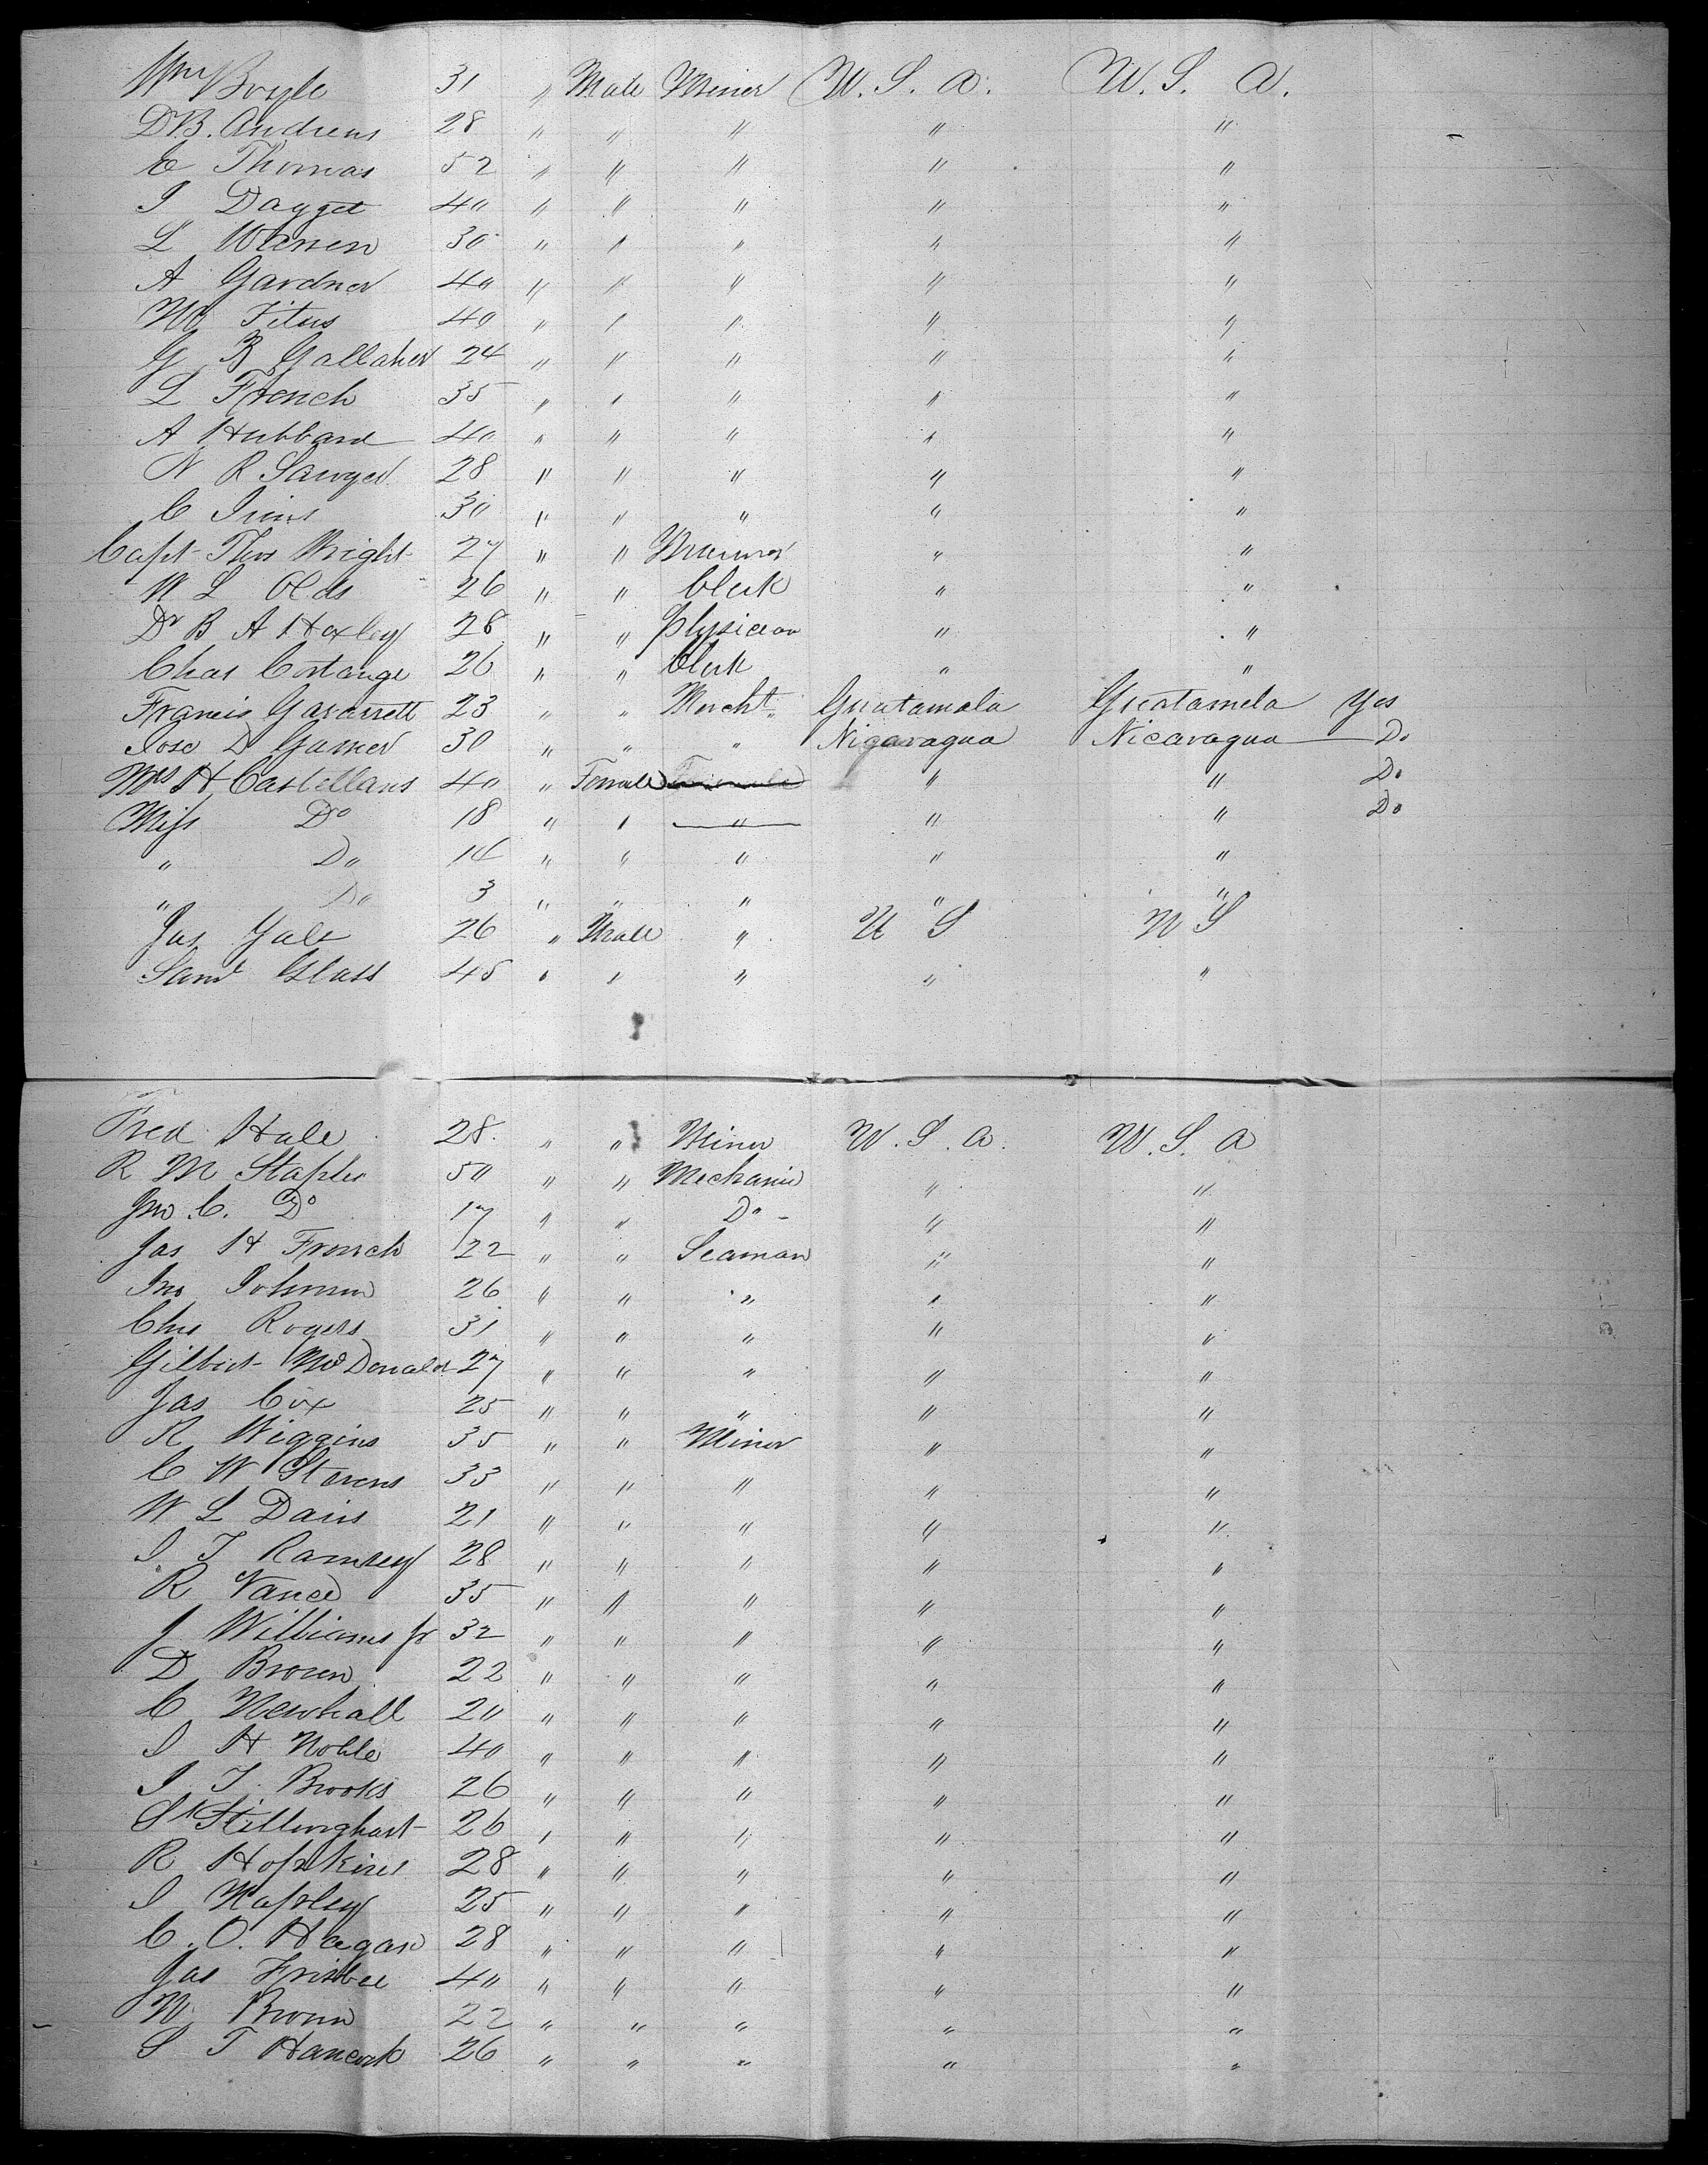 Wm Boyle 31 " Male Miner U. S. A. U. S. A.
D.B. Andrews 28 " " " " "
C Thomas 52 " " " " "
J Dagget 40 " " " " "
L Warren 30 " " " " "
A Gardner 40 " " " " "
W Titus 40 " " " " "
G B Gallaher 24 " " " " "
L French 35 " " " " "
A Hubbard 40 " " " " "
N R Sawyer 28 " " " " "
C 30 " " " " "
Capt Thos Wright 27 " " Mariner " "
W L Olds 26 " " Clerk " "
Dr B A Hoxley 28 " " Physician " "
Chas Costange 26 " " Clerk " "
Francis Gavarrett 23 " " Mercht " Guatamala Guatamela Yes
Jose D Gamer 30 " " " Nigaragua Nicaragua Do
Mrs H Castellans 40 " Female Female " " Do
Miss Do 18 " " " " " Do
" Do 14 " " " " "
" Do 3 " " " " "
Jas Gale 26 " Male " U S U S
Saml Glass 45 " " " " "
Fred Hale 28 " " Miner U. S. A. U. S. A
R M Staples 50 " " Mechanic " "
Jno C. Do 17 " " Do " "
Jas H French 22 " " Seaman " "
Jno Johnson 26 " " " " "
Chas Rogers 31 " " " " "
Gilbert McDonald 27 " " " " "
Jas Cox 25 " " " " "
R Wiggins 35 " " Miner " "
C W Stevens 33 " " " " "
W L Davis 21 " " " " "
J T Ramsey 28 " " " " "
R Vance 35 " " " " "
J Williams Jr 32 " " " " "
D Brown 22 " " " " "
C Newhall 20 " " " " "
J H Noble 40 " " " " "
J T Brooks 26 " " " " "
S Stillinghast 26 " " " " "
R Hopkins 28 " " " " "
J 25 " " " " "
C. O. Hagan 28 " " " " "
Jas Frisbee 40 " " " " "
W Brown 22 " " " " "
S T Hancock 26 " " " " "